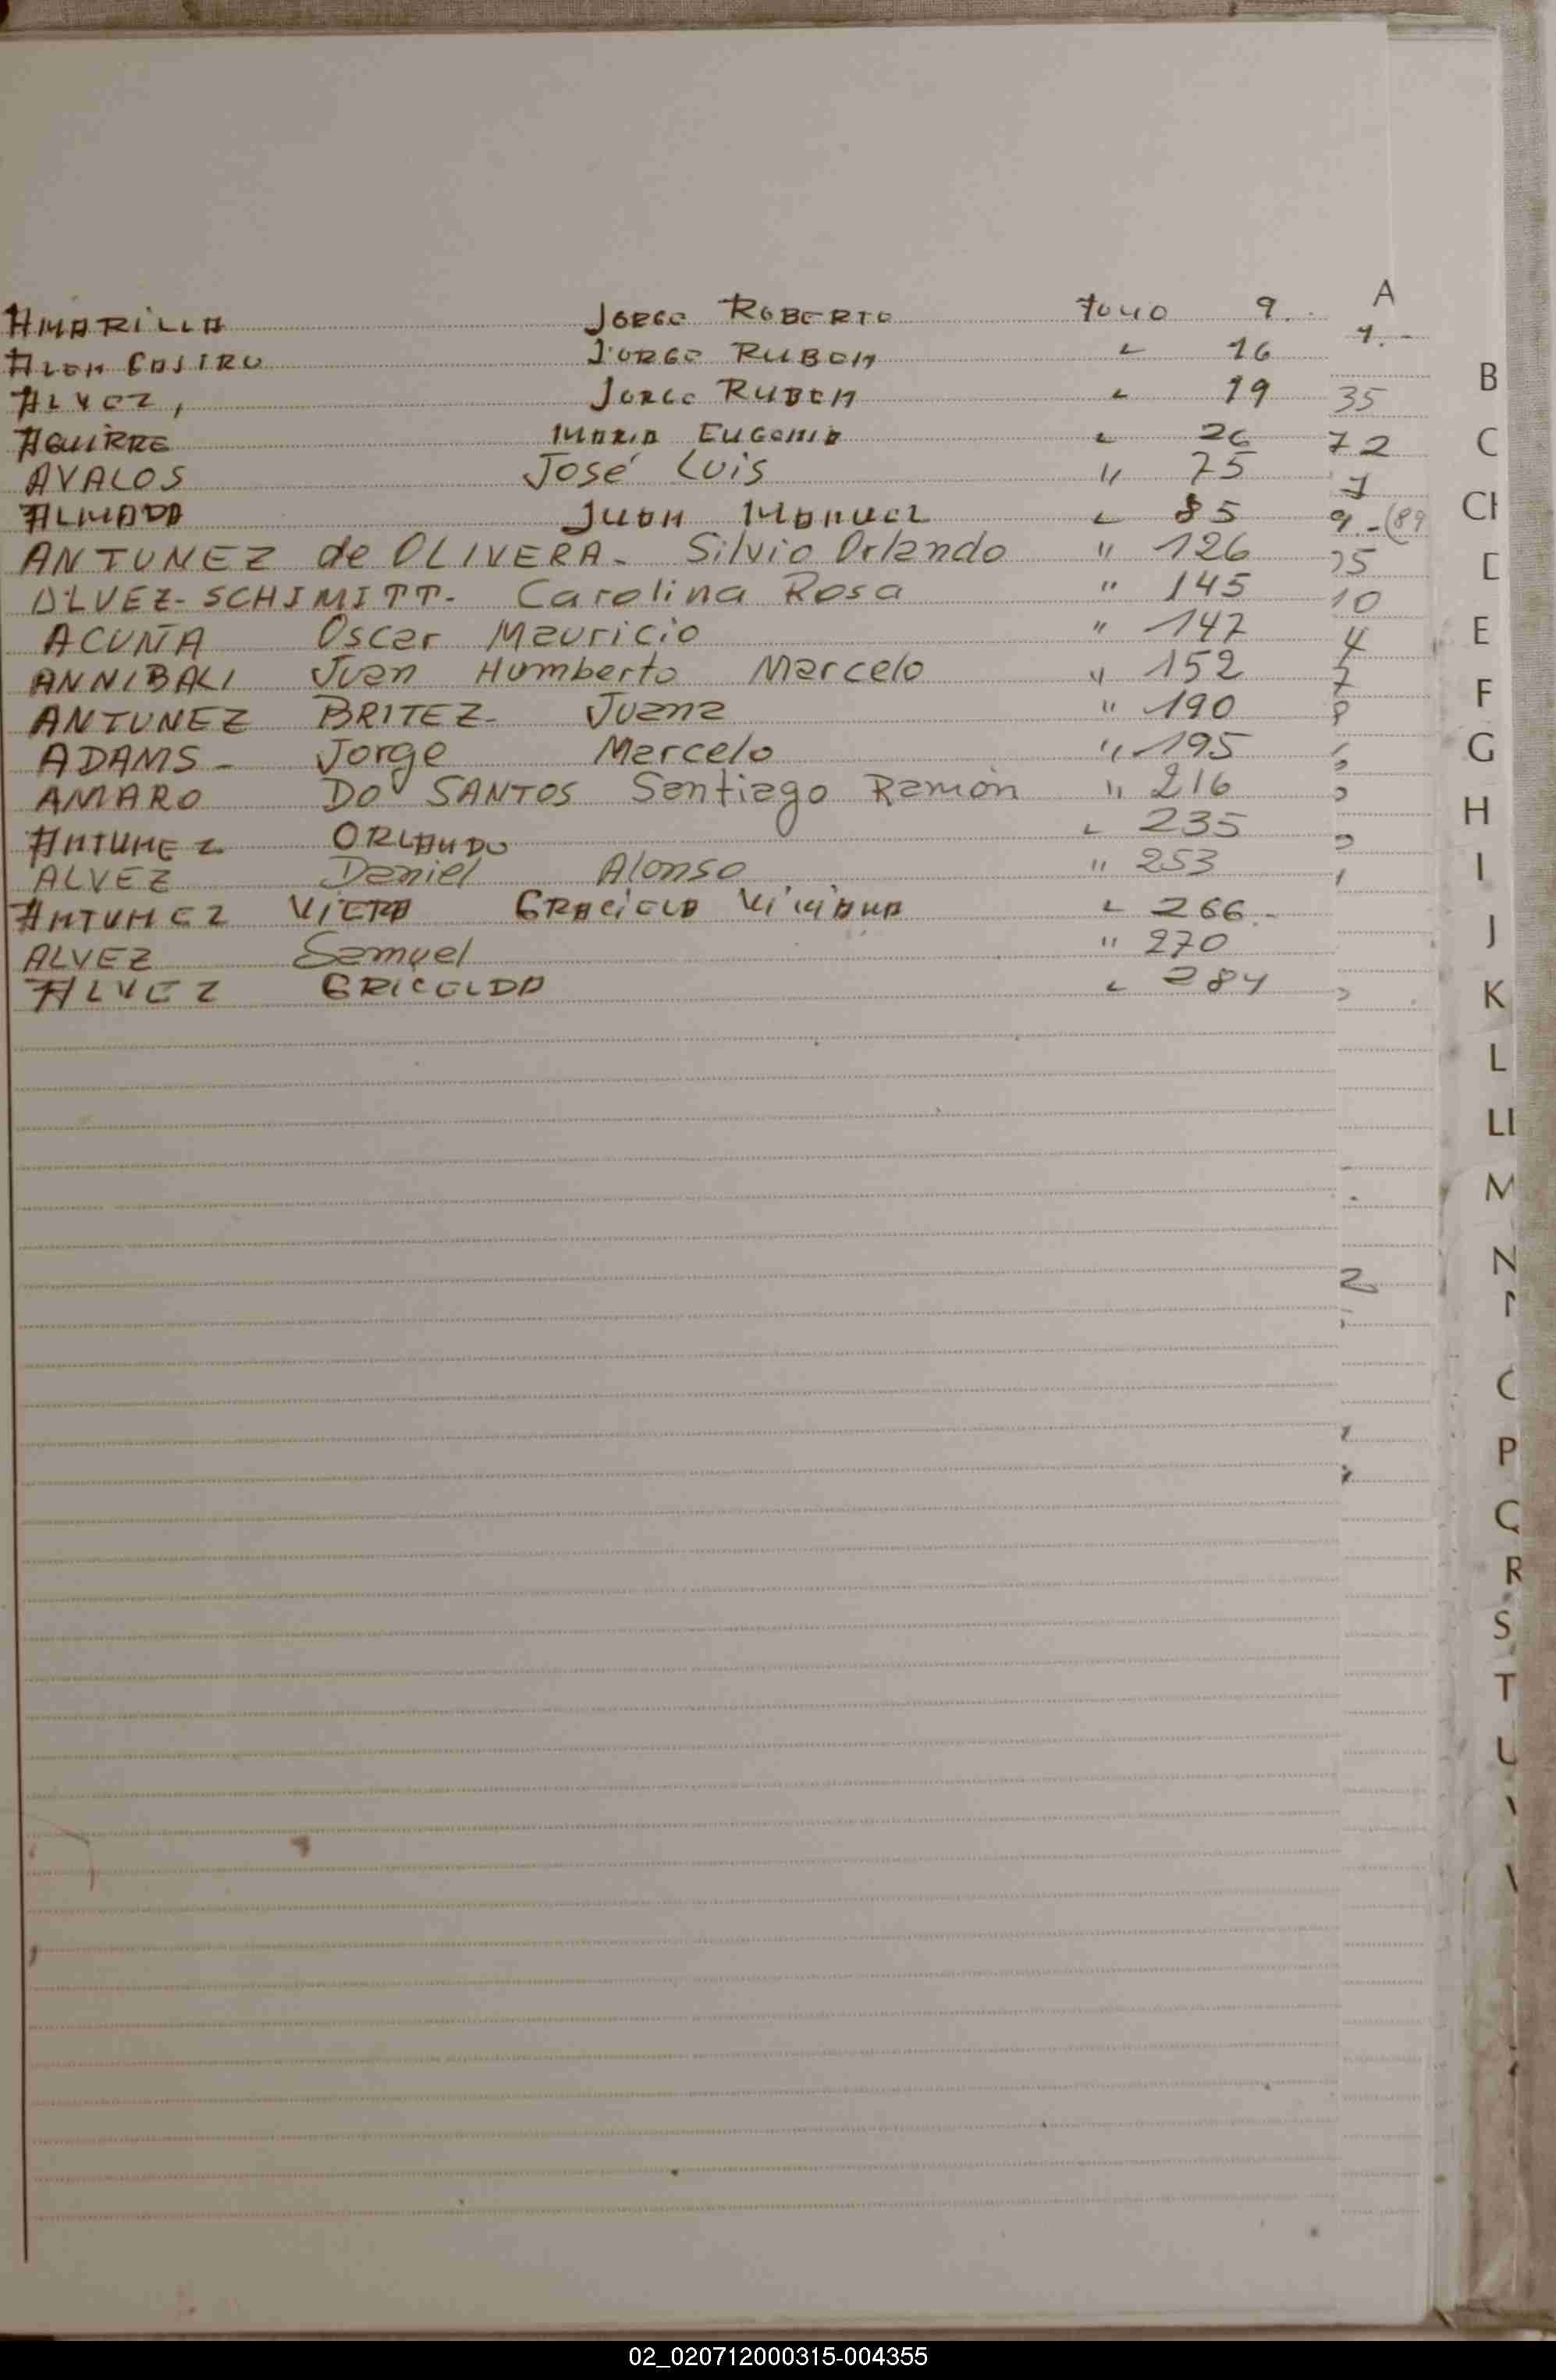 A
AMARILLA JORGE ROBERTO FOLIO 9.
ALEM CASTRO JORGE RUBEN " 16 1.-
ALVEZ, JORGE RUBEN " 19 35
AGUIRRE MARIA EUGENIA " 26 72
AVALOS José Luis " 75 7
ALMADA JUAN MANUEL " 85 9.-(89
ANTUNEZ de OLIVERA- Silvio Orlando " 126 25
ALVEZ-SCHIMITT- Carolina Rosa " 145 10
ACUÑA Oscar Mauricio " 147 4
ANNIBALI Juan Humberto Marcelo " 152 7
ANTUNEZ BRITEZ- Juana " 190 8
ADAMS- Jorge Marcelo " 195
AMARO DO SANTOS Santiago Ramón " 216
ANTUNEZ ORLANDO " 235
ALVEZ Daniel Alonso " 253
ANTUNEZ VIERA GRACIELA VIVIANA " 266.-
ALVEZ Samuel " 270
ALVEZ GRICELDA " 284
2
B
C
CH
D
E
F
G
H
I
J
K
L
LL
M
N
P
Q
R
S
T
U
02_020712000315-004355